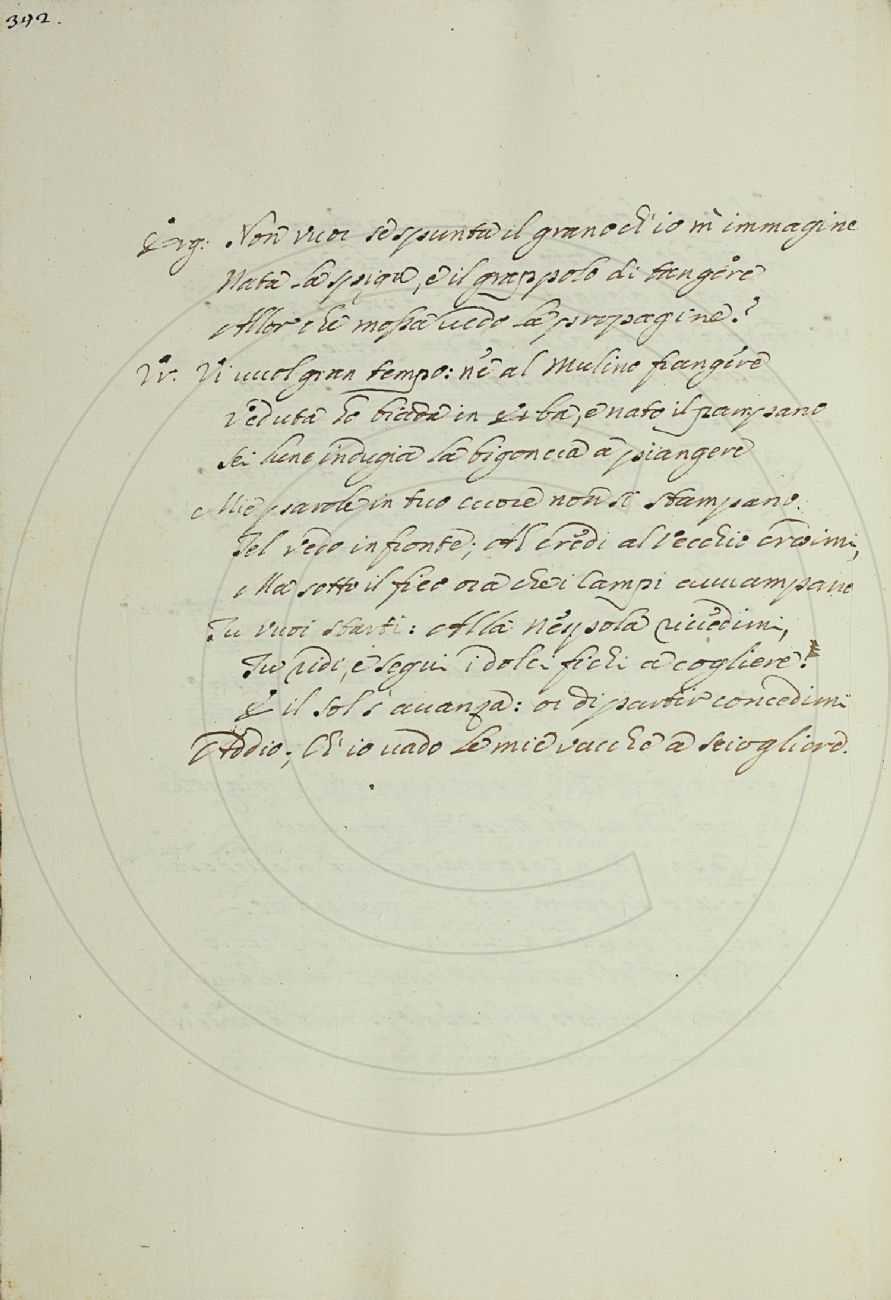 342.
Erg: Non vuoi se spunta il grano ch'io m'immagine
Nata la spiga, e il grappolo di tangere
Allor che mossa vedo la propagine?
Ur. Vi vuol gran tempo: nè al Mulino frangere
Veduta ho biada in Erba, e nato il pampano
Sei lune indugia la bigoncia a piangere
Mie parole in tuo cuore non si stampano.
Tel vedo in fronte; Al credi al vecchio
Ma sotto il fico ora che i Campi avvampano
Tu vuoi starti: Alla Nespola riedimi,
Tu ridi, e segui i dolci fichi a cogliere?
E il Sol s'avanza: or di partir concedimi
Addio; Ch'io vado le mie vacche a sciogliere.